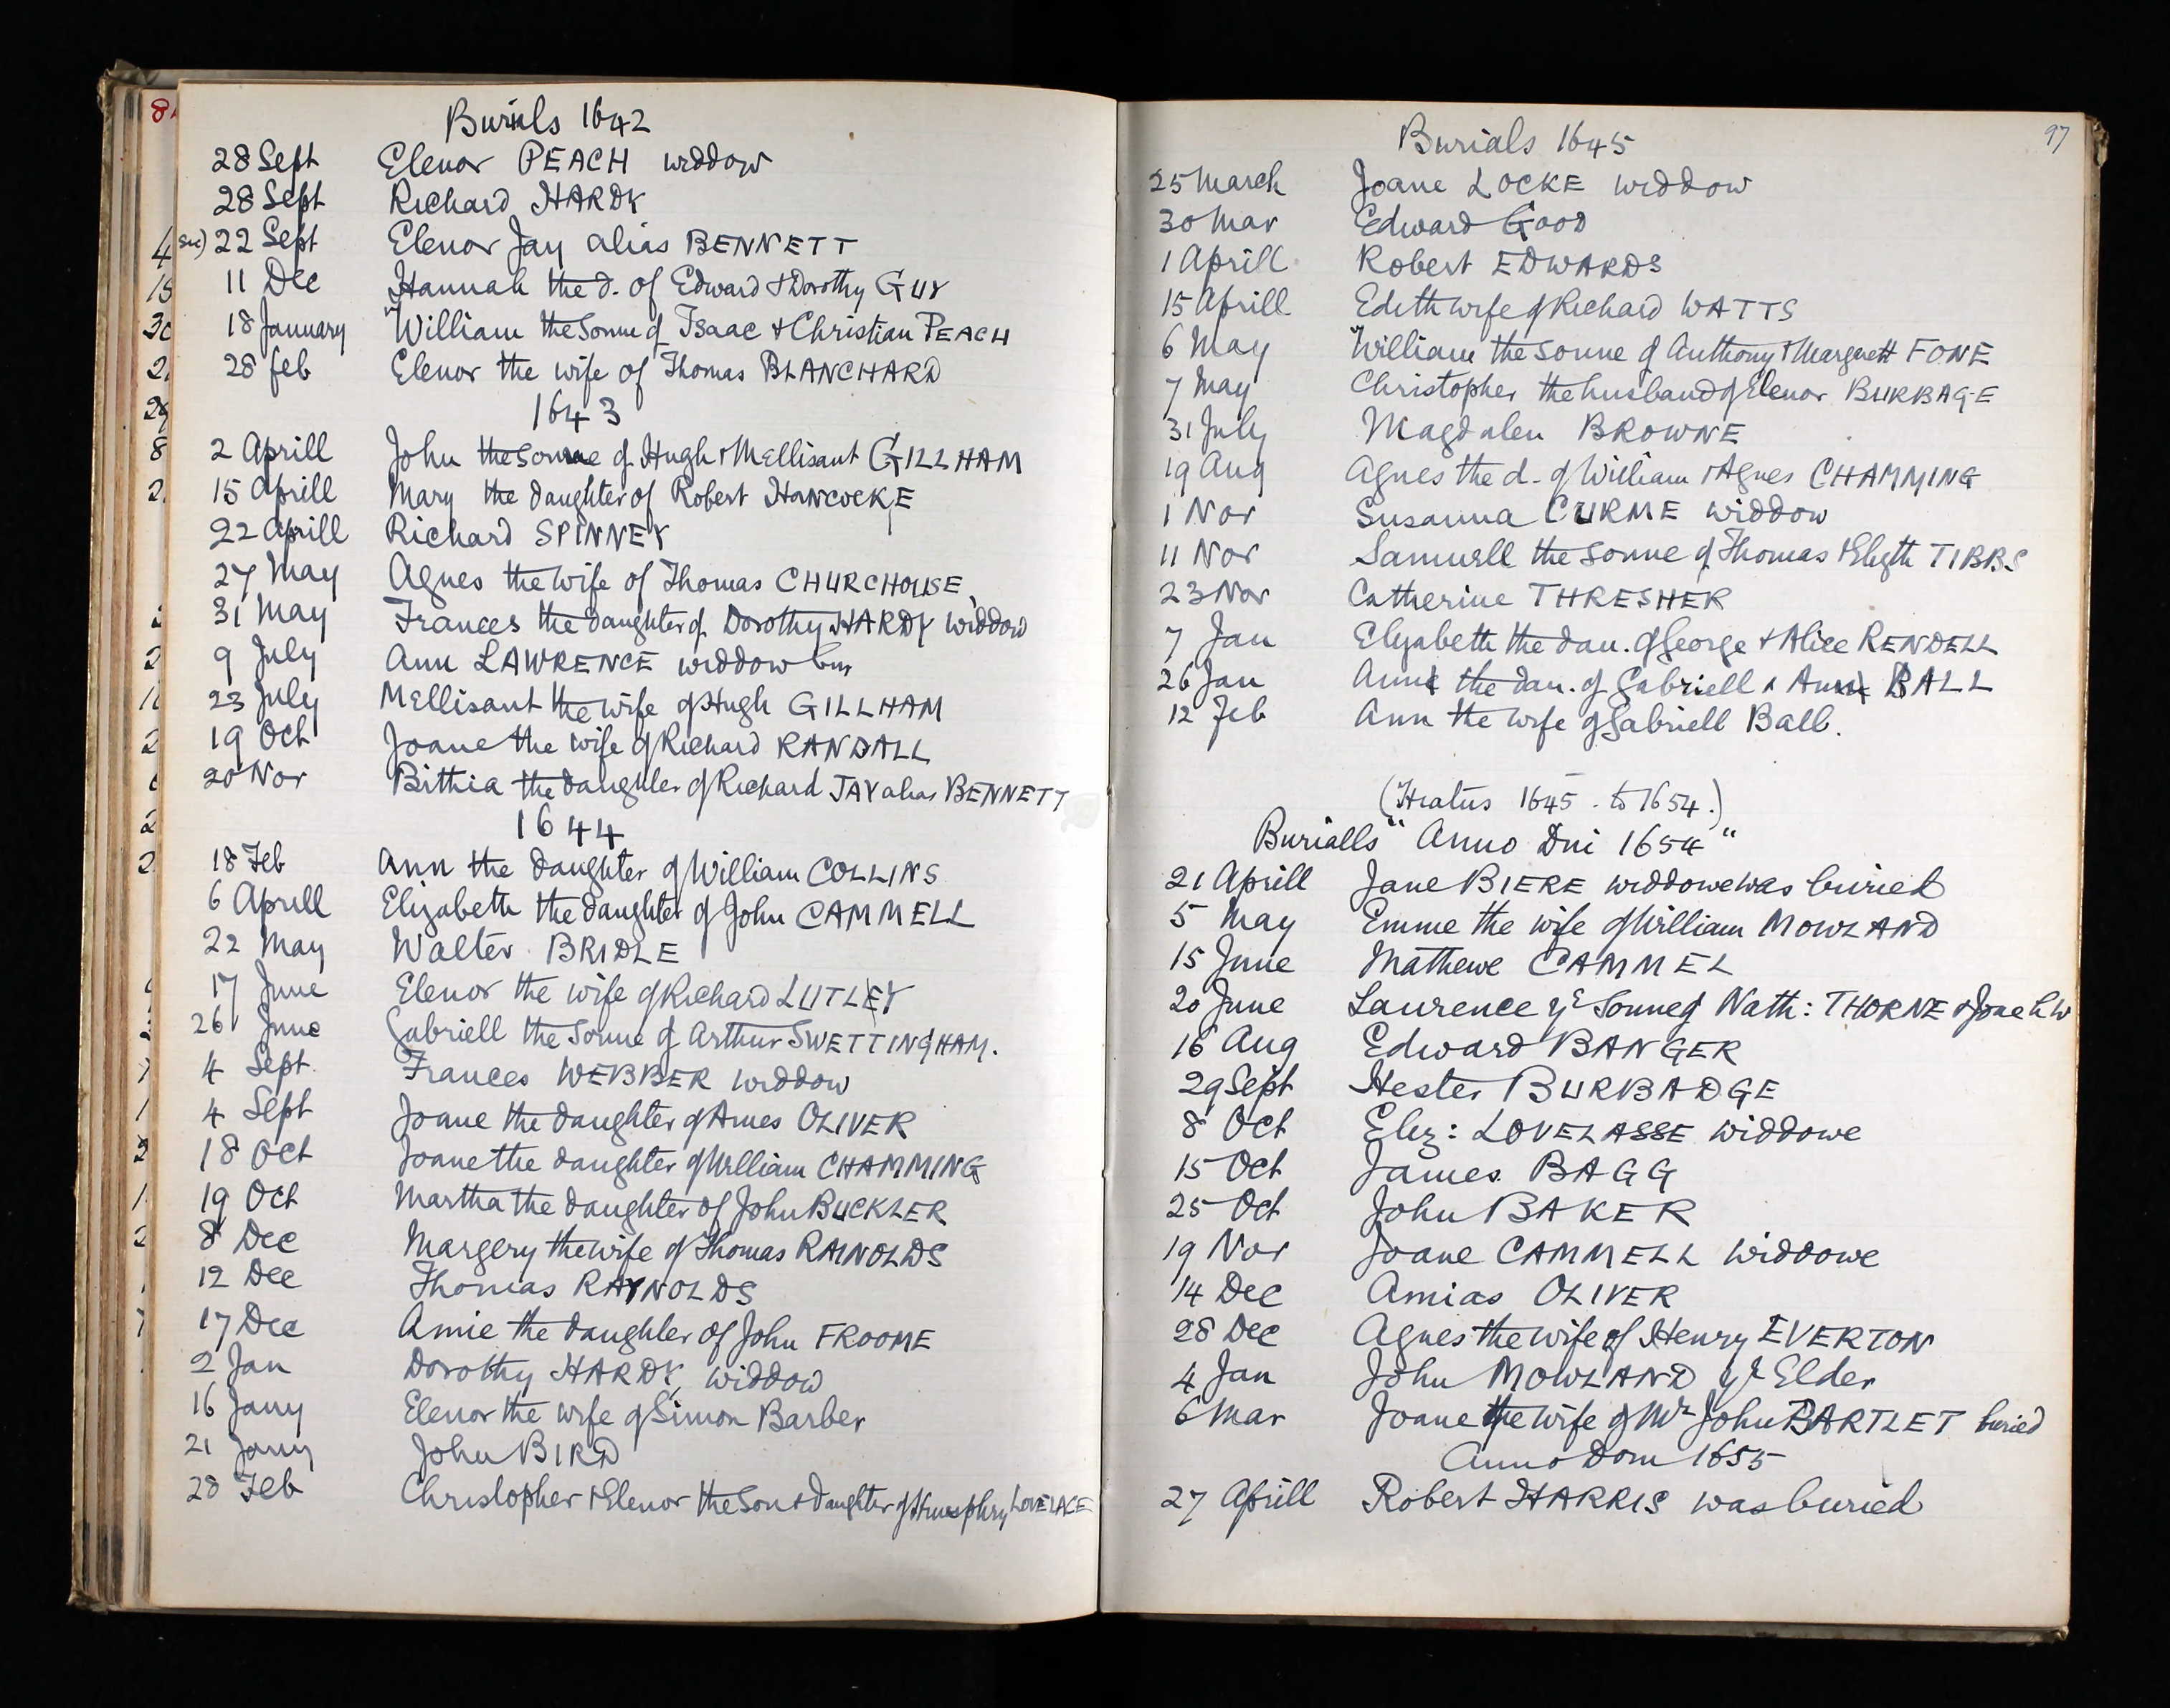 Burials 1642
28 Sept Elenor PEACH widdow
28 Sept Richard HARDY
(sic) 22 Sept Elenor Jay alias BENNETT
11 Dec Hannah the d. of Edward & Dorothy GUY
18 January William the Sonne of Isaac & Christian PEACH
28 feb Elenor the wife of Thomas BLANCHARD
1643
2 Aprill John the Sonne of Hugh & Mellisant GILLHAM
15 Aprill Mary the daughter of Robert HANCOCKE
22 Aprill Richard SPINNEY
27 May Agnes the wife of Thomas CHURCHOUSE
31 May Frances the daughter of Dorothy HARDY widdow
9 July Ann LAWRENCE widdow bur
23 July Mellisant the wife of Hugh GILLHAM
19 Oct Joane the wife of Richard RANDALL
20 Nov Bithia the daughter of Richard JAY alias BENNETT
1644
18 Feb Ann the daughter of William COLLINS
6 Aprill Elizabeth the daughter of John CAMMELL
22 May Walter BRIDLE
17 June Elenor the wife of Richard LUTLEY
26 June Gabriell the Sonne of Arthur SWETTINGHAM.
4 Sept. Frances WEBBER widdow
4 Sept Joane the daughter of Ames OLIVER
18 Oct Joane the daughter of William CHAMMING
19 Oct Martha the daughter of John BUCKLER
8 Dec Margery the wife of Thomas RAINOLDS
12 Dec Thomas RAYNOLDS
17 Dec Amie the daughter of John FROOME
2 Jan Dorothy HARDY widdow
16 Jany Elenor the wife of Simon Barber
21 Jany John BIRD
28 Feb Christopher & Elenor the Son & daughter of Humphry LOVELACE
97
Burials 1645
25 March Joane LOCKE widdow
30 Mar Edward GOOD
1 Aprill Robert EDWARDS
15 Aprill Edith wife of Richard WATTS
6 May William the Sonne of Anthony & Margarett FONE
7 May Christopher the husband of Elenor BURBAGE
31 July Magdalen BROWNE
19 Aug Agnes the d. of William & Agnes CHAMMING
1 Nov Susanna CURME widdow
11 Nov Samuell the Sonne of Thomas & Elyzth TIBBS
23 Nov Catherine THRESHER
7 Jan Elyzabeth the dau. of George & Alice RENDELL
26 Jan Ann the dau. of Gabriell & Ann BALL
12 Feb Ann the wife of Gabriell Ball.
(Hiatus 1645 . to 1654.)
Burialls "Anno Dni 1654"
21 Aprill Jane BIERE widdowe was buried
5 May Emme the wife of William MOWLAND
15 June Mathewe CAMMEL
20 June Laurence ye Sonne of Nath: THORNE & Joane h w
16 Aug Edward BANGER
29 Sept Hester BURBADGE
8 Oct Eliz: LOVELASSE widdowe
15 Oct James BAGG
25 Oct John BAKER
19 Nov Joane CAMMELL widdowe
14 Dec Amias OLIVER
28 Dec Agnes the wife of Henry EVERTON
4 Jan John MOWLAND ye Elder
6 Mar Joane the wife of Mr John BARTLET buried
Anno Dom 1655
27 Aprill Robert HARRIS was buried